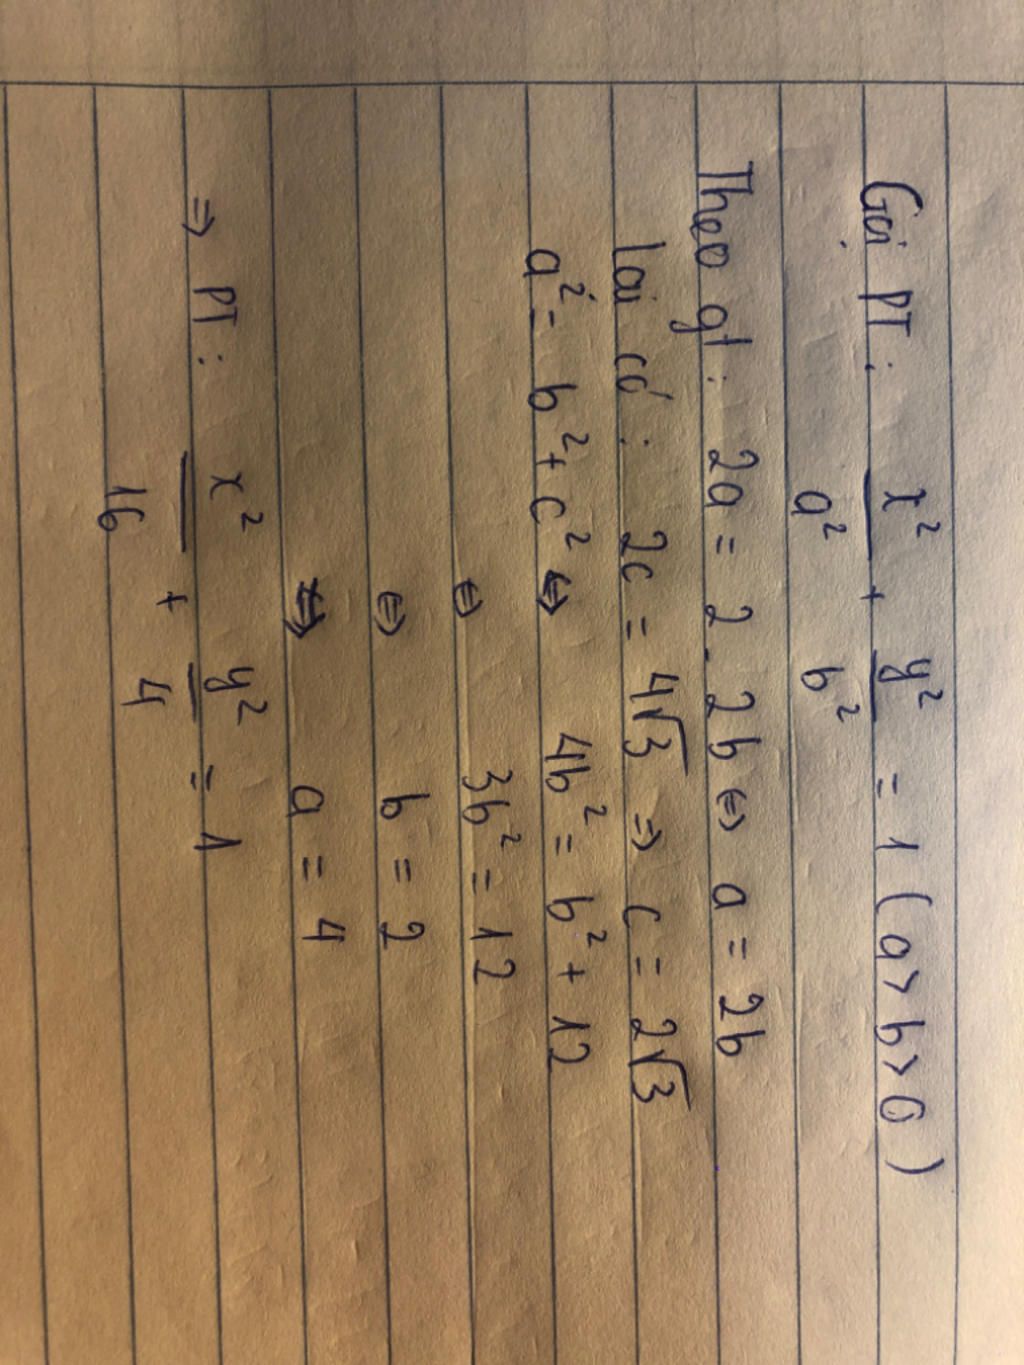 Gọi PT: x²/a² + y²/b² = 1 (a > b > 0)
Theo gt: 2a = 2. 2b ⇔ a = 2b
Lại có: 2c = 4√3 ⇒ c = 2√3
a² = b² + c² ⇔ 4b² = b² + 12
⇔ 3b² = 12
⇔ b = 2
⇒ a = 4
⇒ PT: x²/16 + y²/4 = 1